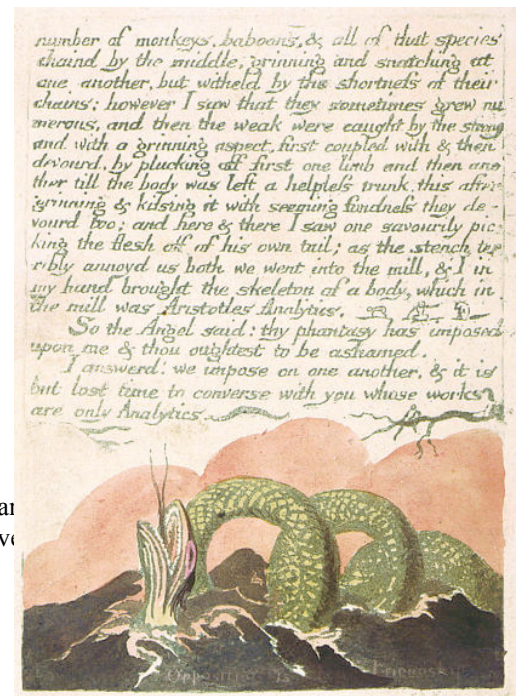 number of monkeys, baboons, & all of that species
chaind by the middle, grinning and snatching at
one another, but witheld by the shortness of their
chains: however I saw that they sometimes grew nu
merous, and then the weak were caught by the strong
and with a grinning aspect, first coupled with & then
devourd, by plucking off first one limb and then ano
ther till the body was left a helpless trunk. this after
grinning & kissing it with seeming fondness they de-
vourd too; and here & there I saw one savourily pic-
king the flesh off of his own tail; as the stench ter
ribly annoyd us both we went into the mill, & I in
my hand brought the skeleton of a body, which in
the mill was Aristotles Analytics.
So the Angel said: thy phantasy has imposed
upon me & thou oughtest to be ashamed.
I answerd: we impose on one another, & it is
but lost time to converse with you whose works
are only Analytics.
Opposition is Friendship